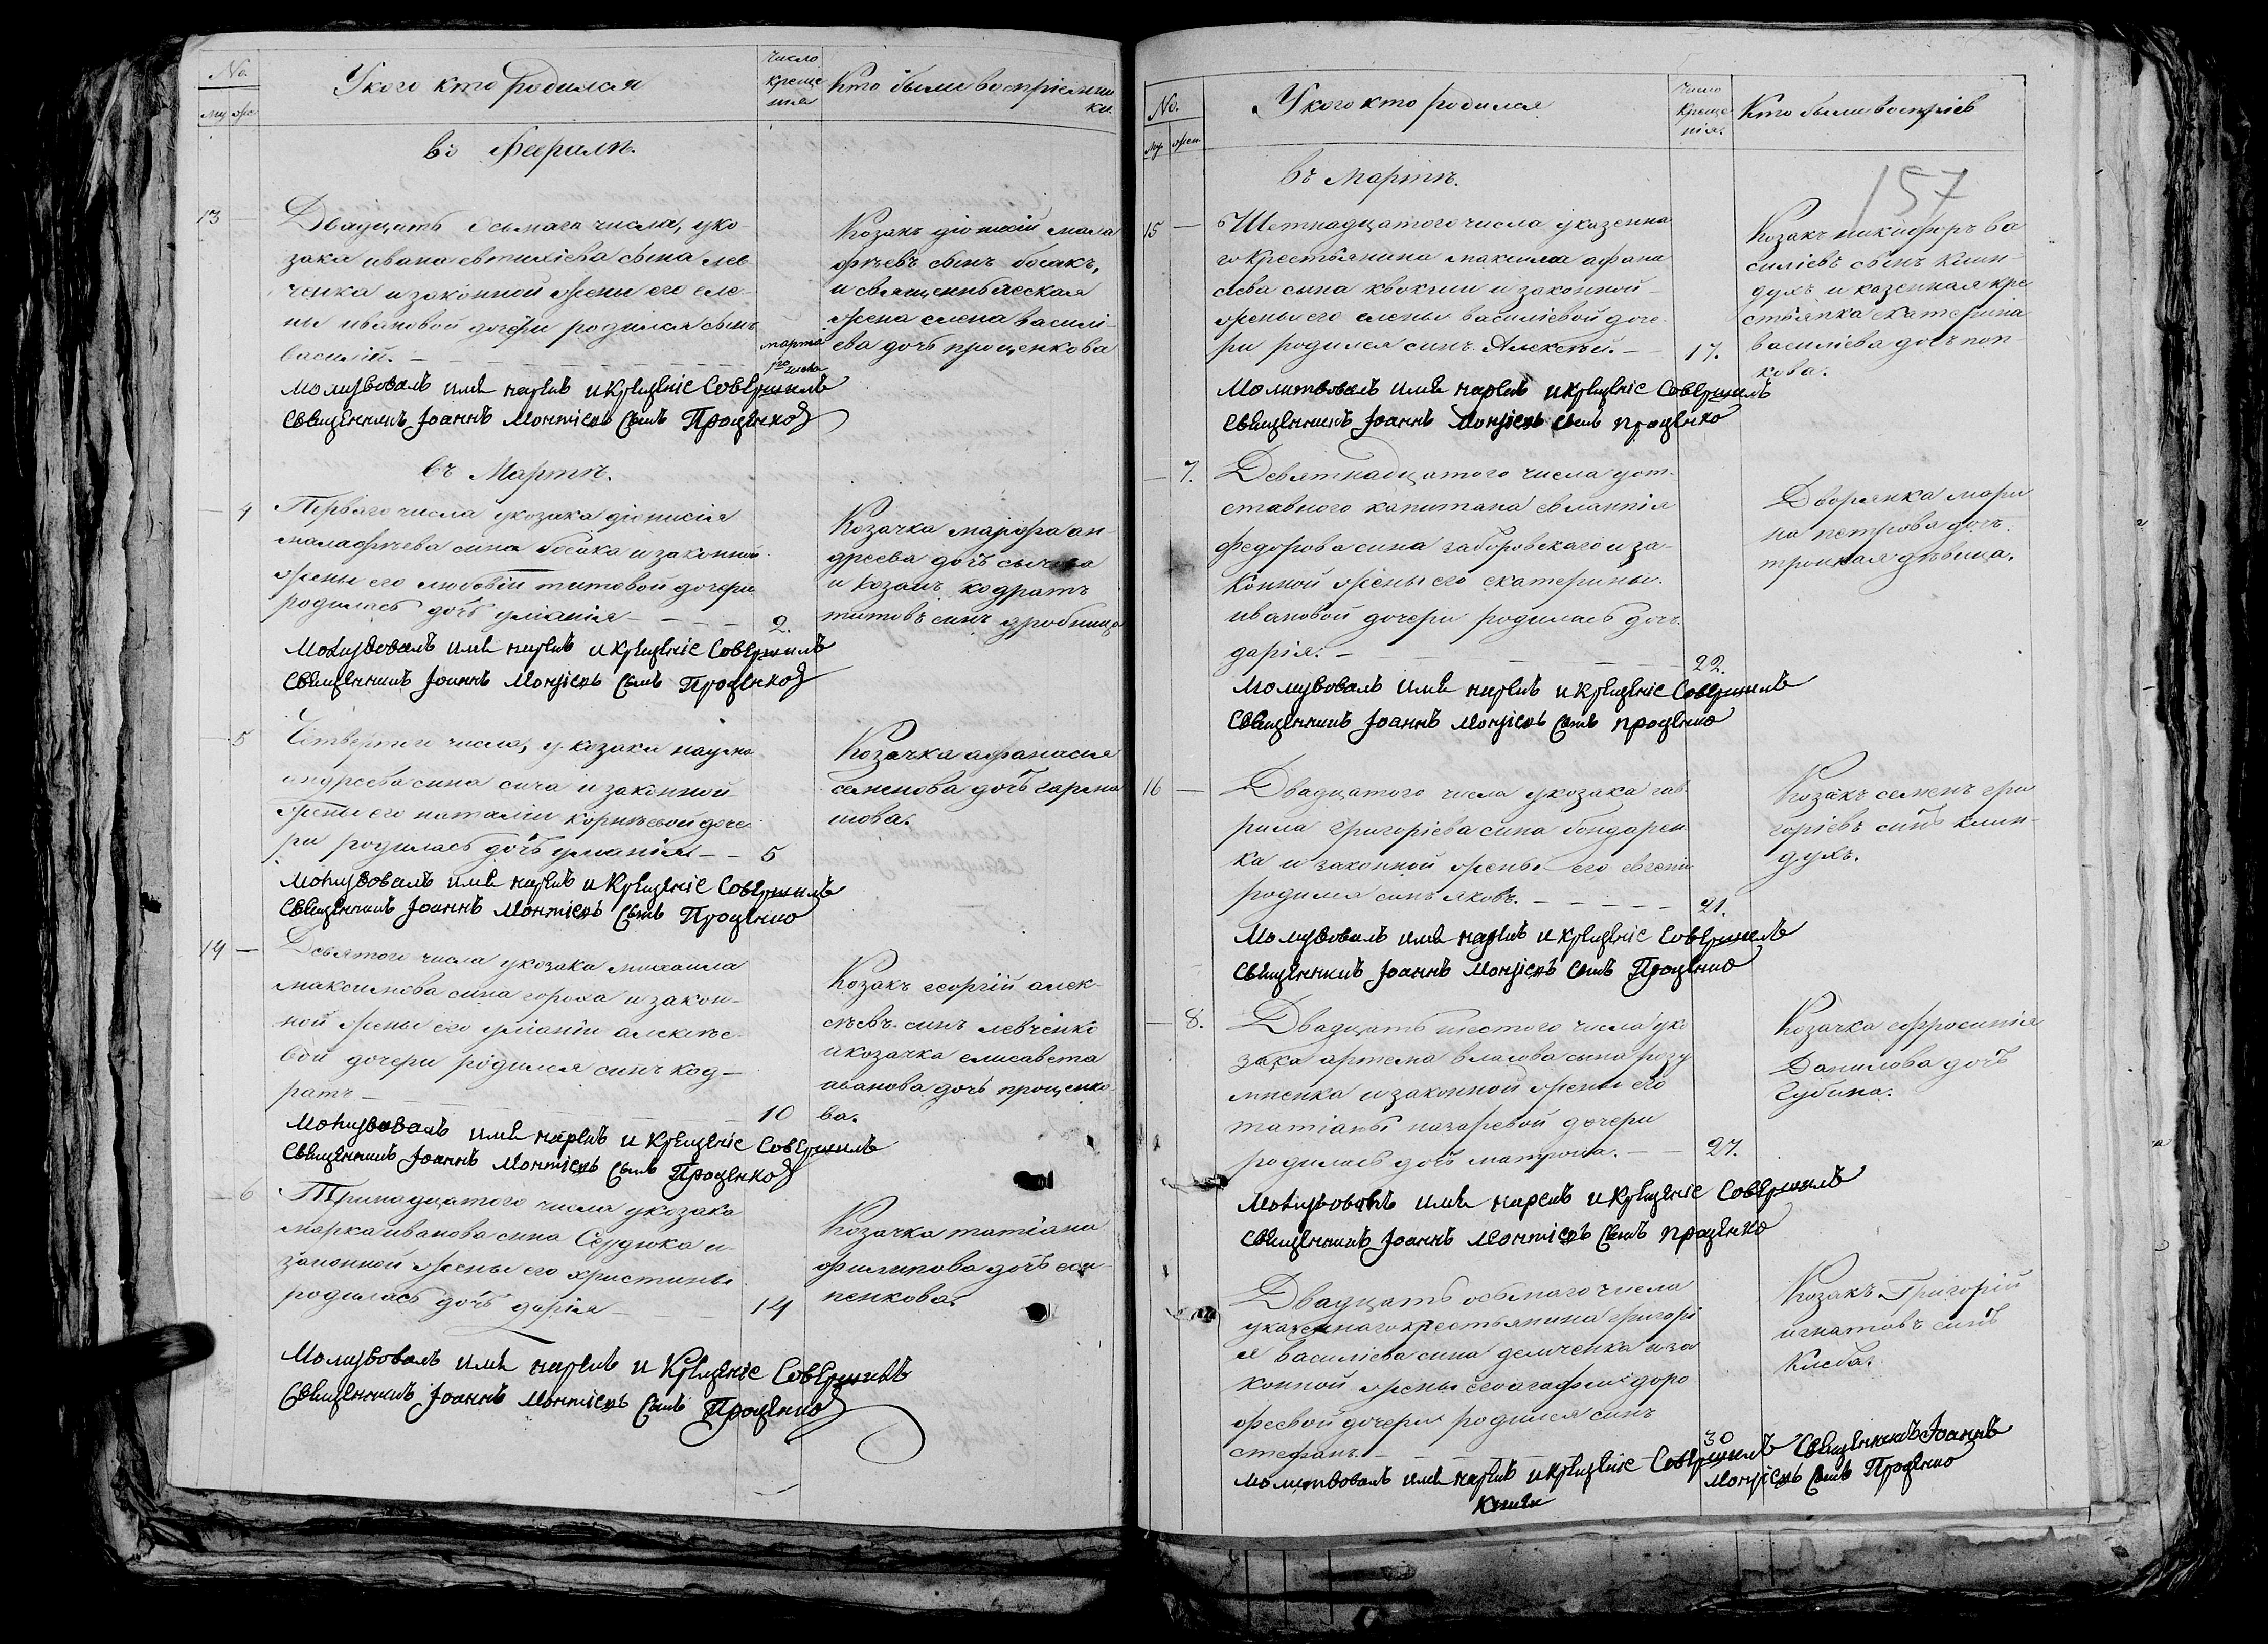 No.
му же
У кого кто родился
число
креще
ния
Кто были воспріемни
ки.
въ Февралѣ.
13 —
Двадцать осьмаго числа, у ко-
зака ивана евтихіева сына лев
ченка и законной жены его еле-
ны ивановой дочери родился сынъ
василій. —
марта
1го числа
Козакъ діонисій мала
фѣевъ сынъ босакъ,
и священническая
жена елена василі-
ева дочь проценкова
Молитвовалъ имя нарекъ и крещеніе совершилъ
Священникъ Іоаннъ Моисіевъ сынъ Проценко
въ Мартѣ.
— 4
Перваго числа у козака діонисія
малафѣева сина босака и законной
жены его любови титовой дочери
родилась дочь уліанія —
2.
Козачка марфа ан-
дреева дочь сычова
и козакъ кодратъ
титовъ синъ дробница
Молитвовалъ имя нарекъ и крещеніе совершилъ
Священникъ Іоаннъ Моисіевъ сынъ Проценко
— 5
Четвертаго числа, у козака наума
андреева сина сича и законной
жены его наталіи корнѣевой доче
ри родилась дочь уліанія —
5
Козачка афанасия
семенова дочь гарма
шова.
Молитвовалъ имя нарекъ и крещеніе совершилъ
Священникъ Іоаннъ Моисіевъ сынъ Проценко
14 —
Девятого числа у козака михаила
максимова сина гороха и закон-
ной жены его уліаніи алексѣе-
вой дочери родился синъ код-
ратъ —
10
Козакъ георгій алек-
сѣевъ синъ левченко
и козачка елисавета
иванова дочь проценко
ва.
Молитвовалъ имя нарекъ и крещеніе совершилъ
Священникъ Іоаннъ Моисіевъ сынъ Проценко
— 6
Тринадцатого числа у козака
марка иванова сина Сердюка и
законной жены его христины
родилась дочь дарія —
14
Козачка татіана
филипова дочь
пенкова.
Молитвовалъ имя нарекъ и крещеніе совершилъ
Священникъ Іоаннъ Моисіевъ сынъ Проценко
No.
му жен
У кого кто родился
число
креще
нія.
Кто были воспріев
157
въ Мартѣ.
15 —
Шетнадцатого числа у казенна
го крестьянина максима афана
сіева сына квокши и законной
жены его елены василіевой доче
ри родился синъ Алексѣй. —
17.
Козакъ никифоръ ва
силіевъ сынъ клин-
духъ и казенная кре
стьянка екатерина
василіева дочь поп-
кова.
Молитвовалъ имя нарекъ и крещеніе совершилъ
Священникъ Іоаннъ Моисіевъ сынъ проценко
— 7.
Девятнадцатого числа у от-
ставного капитана евлампія
федорова сина заборовскаго и за-
конной жены его екатерины
ивановой дочери родилась дочь
дарія. —
22.
Дворянка мари
на петрова дочь
троцкая дѣвица.
Молитвовалъ имя нарекъ и крещеніе совершилъ
Священникъ Іоаннъ Моисіевъ сынъ проценко
16 —
Двадцатого числа у козака гав
рила григоріева сина бондарен
ка и законной жены его евгеніи
родился синъ яковъ. —
21.
Козакъ семенъ гри
горіевъ синъ клин-
духъ.
Молитвовалъ имя нарекъ и крещеніе совершилъ
Священникъ Іоаннъ Моисіевъ сынъ Проценко
— 8.
Двадцать шестого числа у ко
зака артема власова сына разу
мненка и законной жены его
татіаны назаревой дочери
родилась дочь матрона. —
27.
Козачка ефросинія
Данилова дочь
Губина.
Молитвовалъ имя нарекъ и крещеніе совершилъ
Священникъ Іоаннъ Моисіевъ сынъ проценко
Двадцать осьмаго числа
у казеннаго крестьянина григорі
я василіева сина демченка и за
конной жены его агафіи доро
феевой дочери родился синъ
стефанъ. —
30
Козакъ Григорій
игнатовъ синъ
Клеба.
Молитвовалъ имя нарекъ и крещеніе совершилъ Священникъ Іоаннъ
Моисіевъ сынъ Проценко